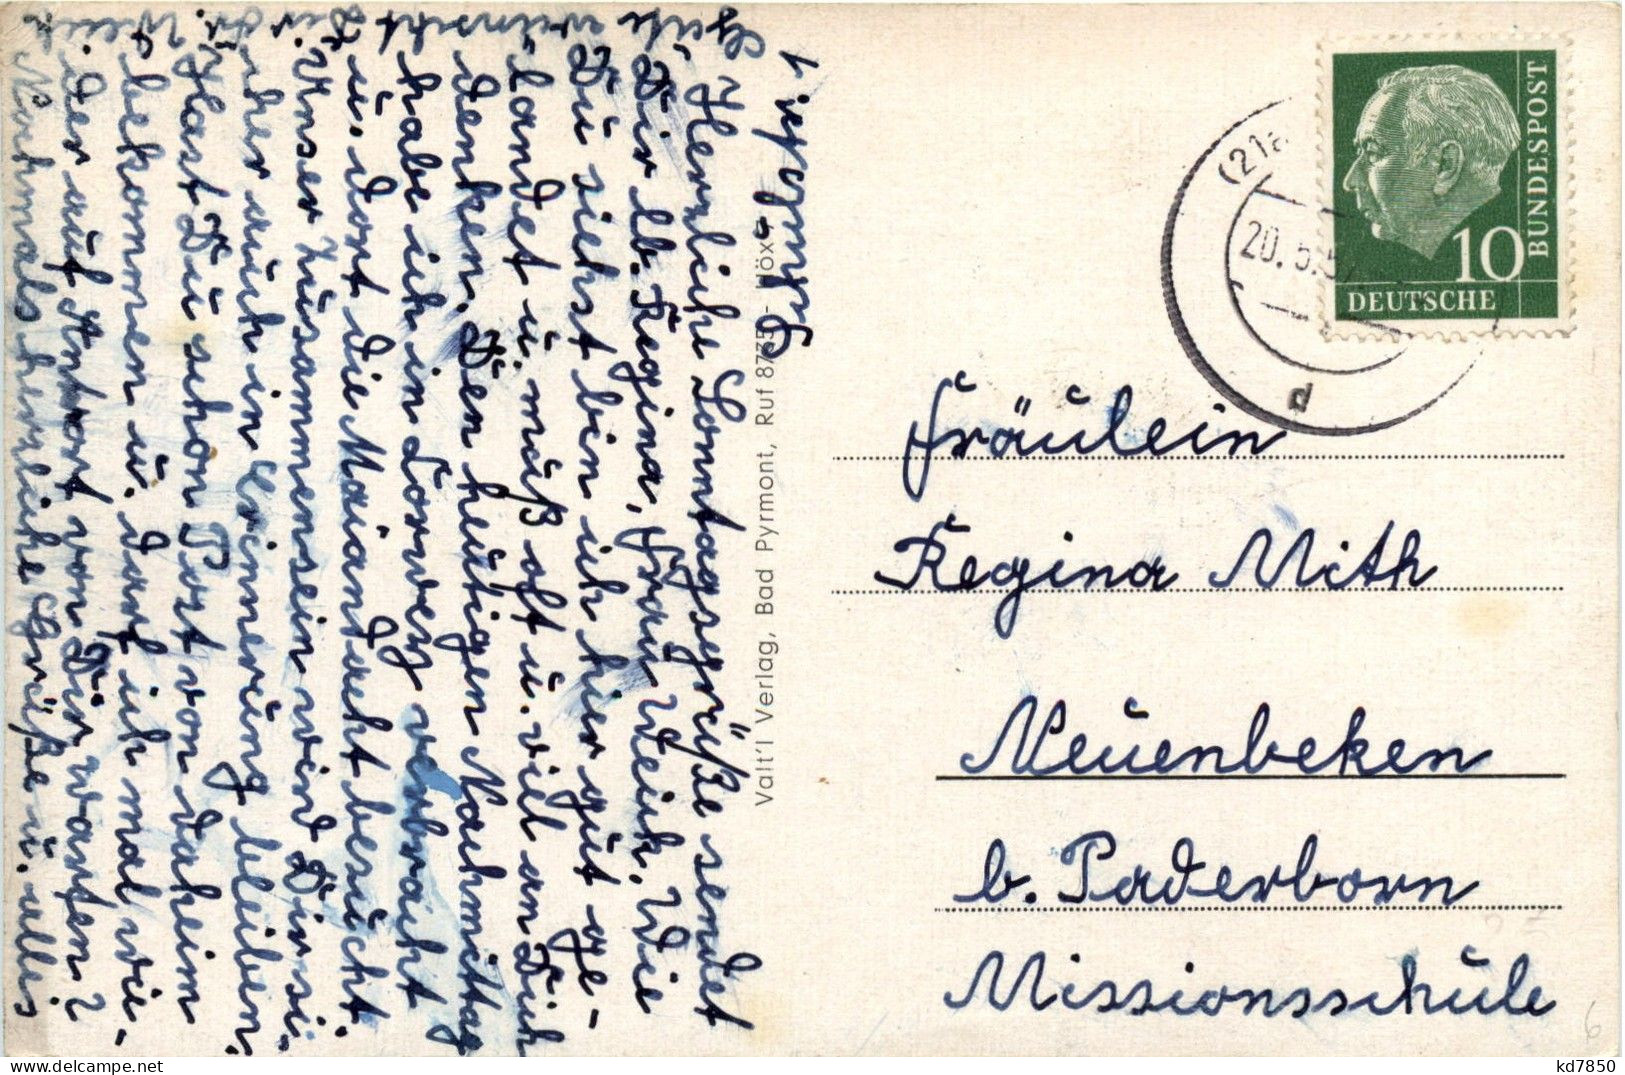 Lippspr.
Herzliche Sonntagsgrüße sendet
Dir lb. Regina, Frau Weik. Wie
Du siehst bin ich hier gut ge-
landet u. muß oft u. viel an Dich
denken. Den heutigen Nachmittag
habe ich in verbracht
u. dort die Maiandacht besucht.
Unser Zusammensein wird Dir si-
cher auch in Erinnerung bleiben.
Hast Du schon Post von daheim
bekommen u. darf ich mal wie-
der auf Antwort von Dir warten?
Nochmals herzliche Grüße u. alles
Gute wünscht Dir Fr. Weik
Valt'l Verlag, Bad Pyrmont, Ruf 8735 - Höx
(21a
20.5.5
d
DEUTSCHE
BUNDESPOST
10
Fräulein
Regina Mith
Neuenbeken
b. Paderborn
Missionsschule
6
kd7850